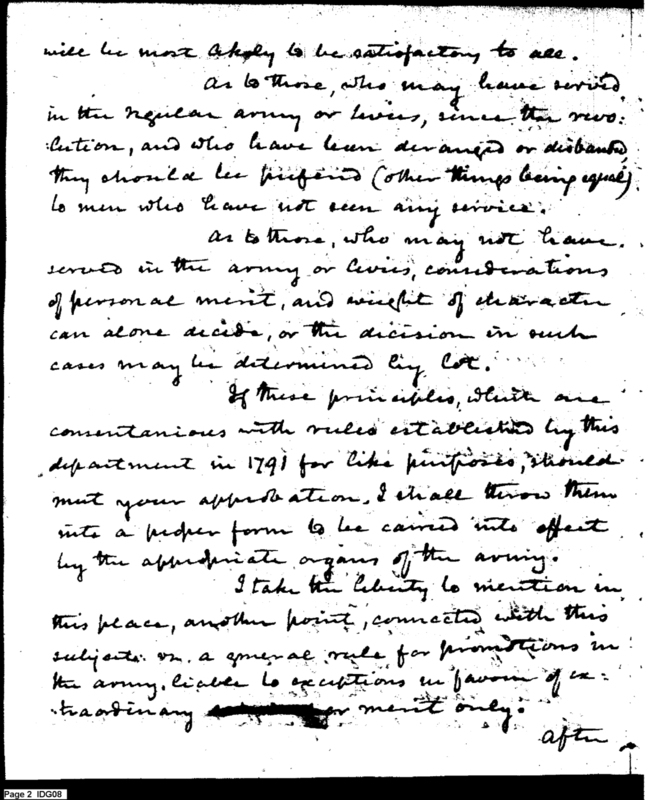 will be most likely to be satisfactory to all.
As to those, who may have served,
in the regular army or levies, since the revo:
:lution, and who have been deranged or disbanded,
they should be prefered (other things being equal)
to men who have not seen any service.
As to those, who may not have
served in the army or levies, considerations
of personal merit, and weight of character
can alone decide, or the decision in such
cases may be determined by lot.
If these principles, which are
consentanious with rules established by this
department in 1791 for like purposes, should
meet your approbation, I shall throw them
into a proper form to be carried into effect
by the appropriate organs of the army.
I take the liberty to mention in
this place, another point, connected with this
subject. vz. a general rule for promotions in
the army, liable to exceptions in favour of ex:
:traordinary or merit only.
After
Page 2 IDG08